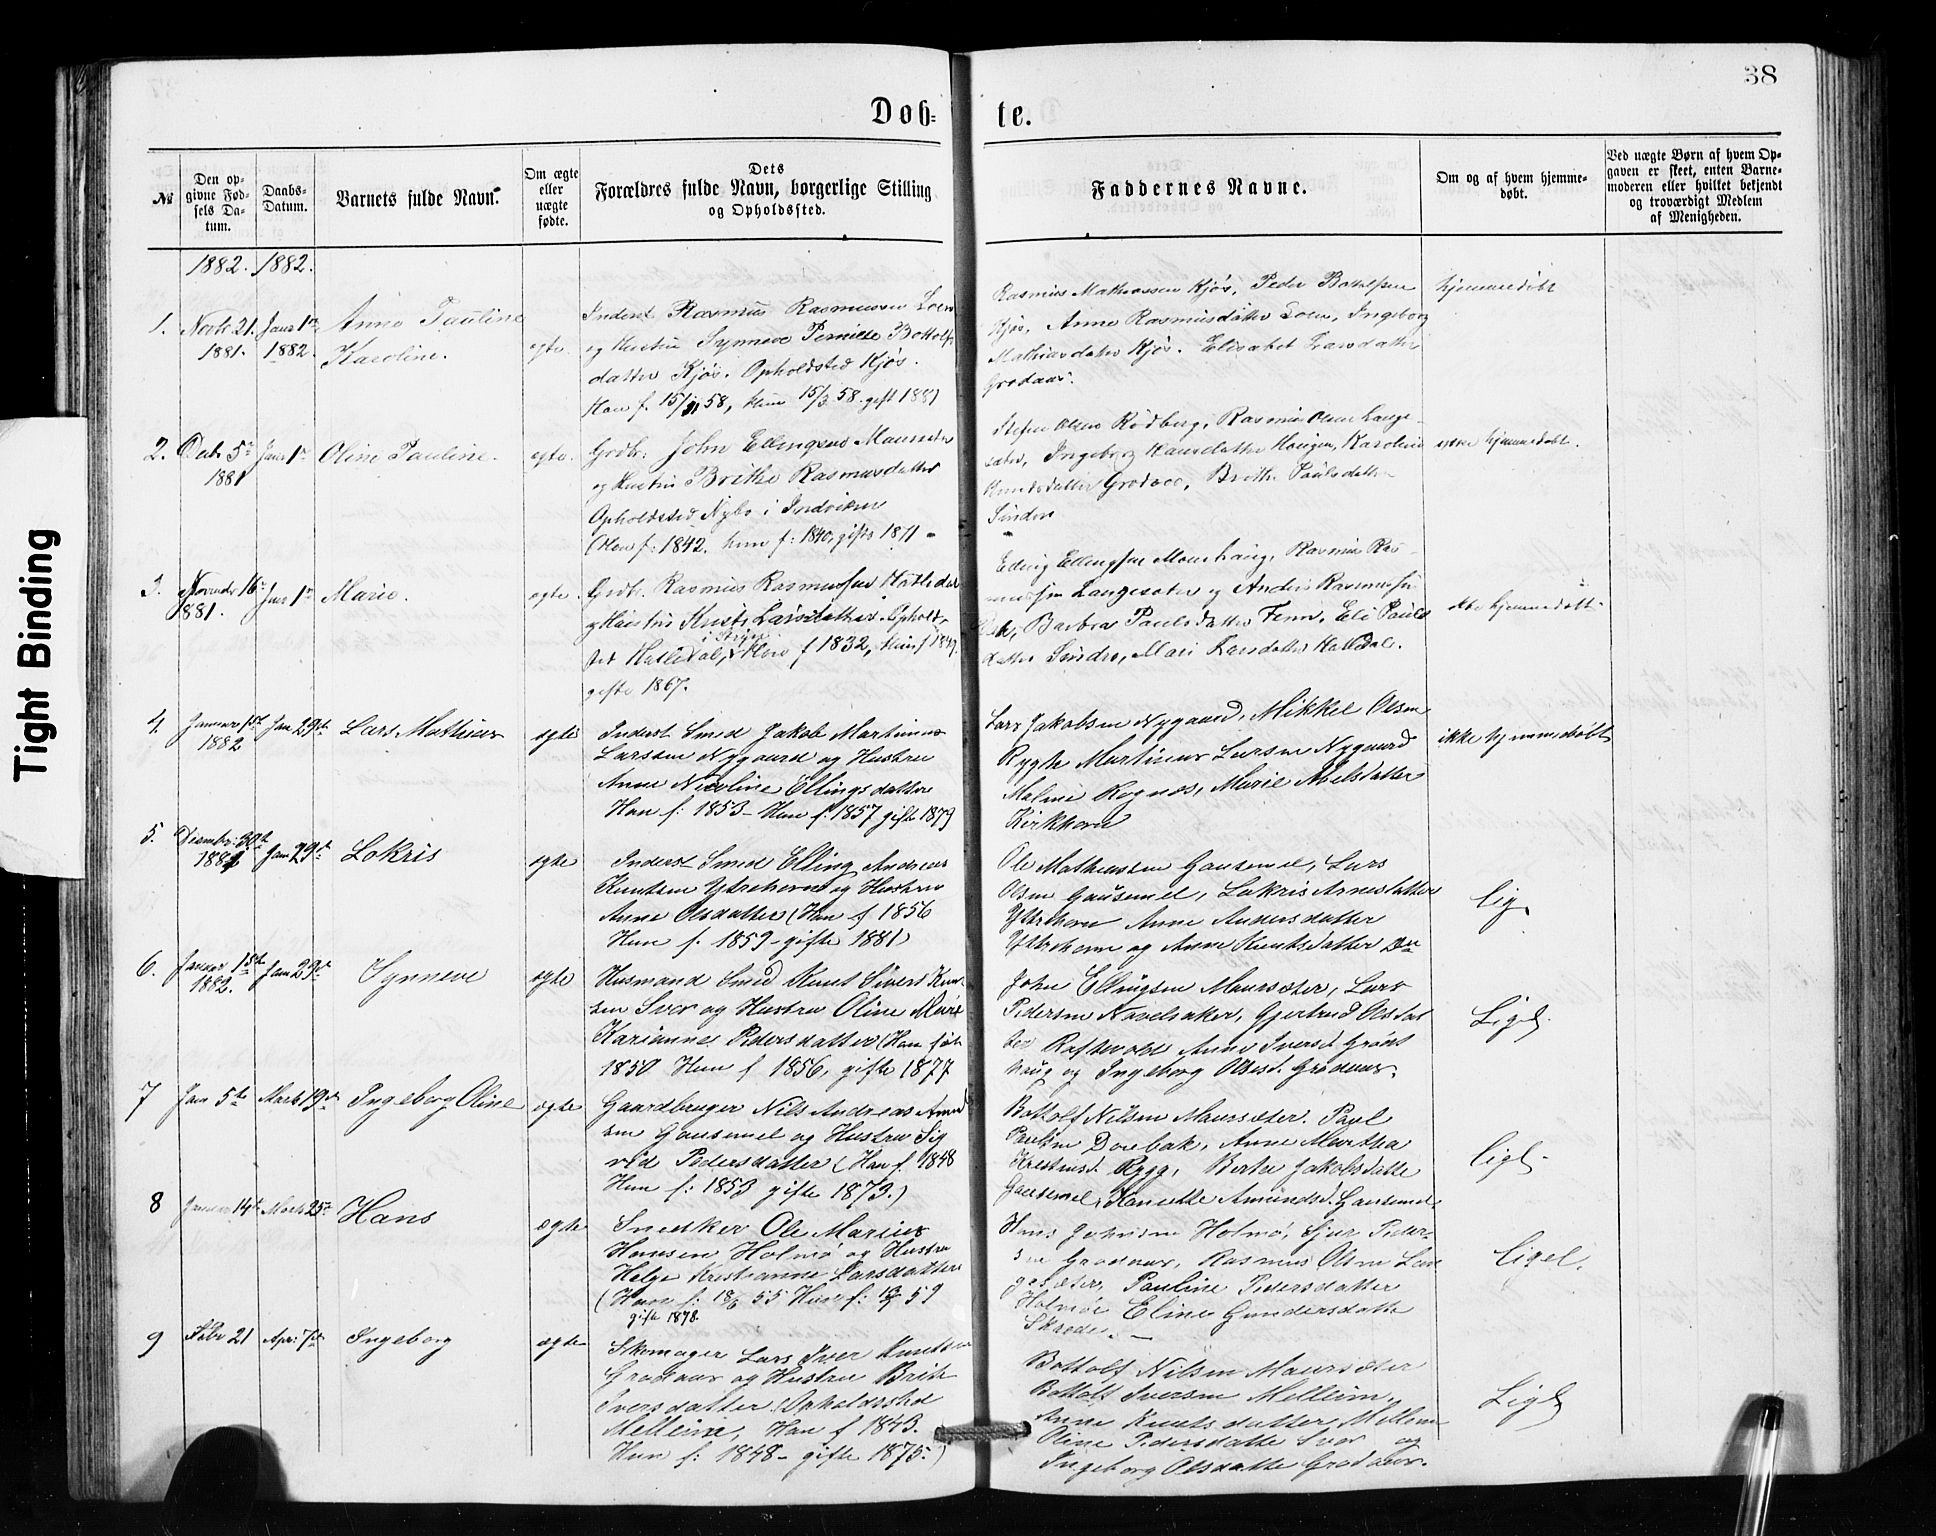 38
Døb-
te.
№
Den op-
givne Fød-
sels Da-
tum.
Daabs-
Datum.
Barnets fulde Navn.
Om ægte
eller
uægte
fødte.
Dets
Forældres fulde Navn, borgerlige Stilling
og Opholdssted.
Faddernes Navne.
Om og af hvem hjemme-
døbt.
Ved uægte Børn af hvem Op-
gaven er skeet, enten Barne-
moderen eller hvilket bekjendt
og troværdigt Medlem
af Menigheden.
1882. 1882.
1. Novbr 21. Janr 1ste
1881. 1882.
Anne Pauline
Karoline.
egte.
Inderst Rasmus Rasmussen Loen
og Hustru Synneve Pernille Bottolfs
datter Kjøs. Opholdsted Kjøs.
Han f. 15/ 58, Hun 15/3 58. gift 1881
Rasmus Mathiassen Kjøs, Peder Bottolfsen
Kjøs, Anne Rasmusdatter Loen, Ingeborg
Mathiasdatter Kjøs. Elisabet Larsdatter
Grodaas.
hjemmedøbt
2. Decbr 5te Janr 1ste
1881
Oline Pauline.
egte.
Grdbr. John Ellingsen Maurseter
og Hustru Brithe Rasmusdatter
Opholdsted Nybø i Indviken
(Han f: 1842. hun f: 1840, gifte 1871
Olsen Rødberg, Rasmus Olsen Lange-
sæter, Ingeborg Hansdatter Haugen, Karoline
Knudsdatter Grodaas, Brithe Paulsdatter
Sindre
hjemmedøbt.
3. November 16de Janr 1ste
1881.
Marie.
egte.
Grdbr. Rasmus Rasmussen Hatledal
og Hustru Kristi Larsdatter. Ophold-
i Stryn
sted Hatledal, Han f 1832, Hun f 1842.
gifte 1867.
Elling Ellingsen Maurhaug, Rasmus Ras-
mussen Langesæter og Anders Rasmussen
Barbra Paulsdatter Fenn, Eli Pauls
datter Sindre, Mari Larsdatter Hatledal.
ikke hjemmedøbt.
4. Januar 15de Jan 29de
1882
Lars Mathias
egte
Inderst Smed Jakob Martinus
Larssen Nygaard og Hustru
Anne Nicoline Ellingsdatter
Han f: 1853 - Hun f: 1857 gifte 1879
Lars Jakobsen Nygaard, Mikkel Olsen
Rygh Martinus Larsen Nygaard
Malene Rognes, Marie Nielsdatter
Kirkhorn
ikke hjemmedøbt
5. Desember 30te Jan 29de
1881
Lokris
egte
Inderst Smed Elling Andreas
Knutsen Ytrehorn og Hustru
Anne Olsdatter (Han f. 1856
Hun f. 1859 - gifte 1881)
Ole Mathiassen Gausemel, Lars
Olsen Gausemel, Lokris Arnesdatter
Ytrehorn Anne Andersdatter
Ytrehorn og Anne Knutsdatter Do
lig.
6. Januar 15de Jan 29de
1882.
Synneve
egte
Husmand Smed Knut Sivert Knut-
sen Svor og Hustru Oline Marie
Karianne Pedersdatter (Han født
1850 Hun f 1856, gifte 1877
John Ellingsen Maurseter, Lars
Pedersen Navelsaker, Gjertrud Olsdat
ter Raftevold Anne Iversd. Grønt
haug og Ingeborg Olsesd. Grodaas.
Ligel.
7 Jan 5te Marts 19de
Ingeborg Oline
egte
Gaardbruger Nils Andreas Amund
sen Gausemel og Hustru Sig
rid Pedersdatter (Han f. 1848
Hun f: 1853 gifte 1873.)
Bottolf Nilsen Maurseter. Paul
Paulsen Dvebak, Anne Martha
Kristensd. Rygg, Berte Jakobsdatte
Gausemel, Hansikke Amundsd. Gausemel
ligl.
8 Januar 14de Marts 25de
Hans
egte
Snedker Ole Marius
Hansen Holmø og Hustru
Helge Kristianne Larsdatter
(Han f: 18/6 55 Hun f: 59
gifte 1878.
Hans Johnsen Holmø, Sjur Peder-
sen Grodaas, Rasmus Olsen Lan
gesæter, Pauline Pedersdatter
Holmøe Eline Gundersdatte
Skrede. -
ligel.
9 Febr 21 Apri 7de
Ingeborg
ægte
Skomager Lars Iver Knutsen
Grodaas og Hustru Brite
Iversdatter (Opholdssted
Melleim, Han f 1843.
Hun f: 1848 - gifte 1875.)
Bottolf Nilsen Maurseter
Bottolf Iversen Melleim,
Anne Knutsdatter Mellem
Oline Pedersdatte Svor og
Ingeborg Olsdatte Grodaas.
Ligl
Tight Binding